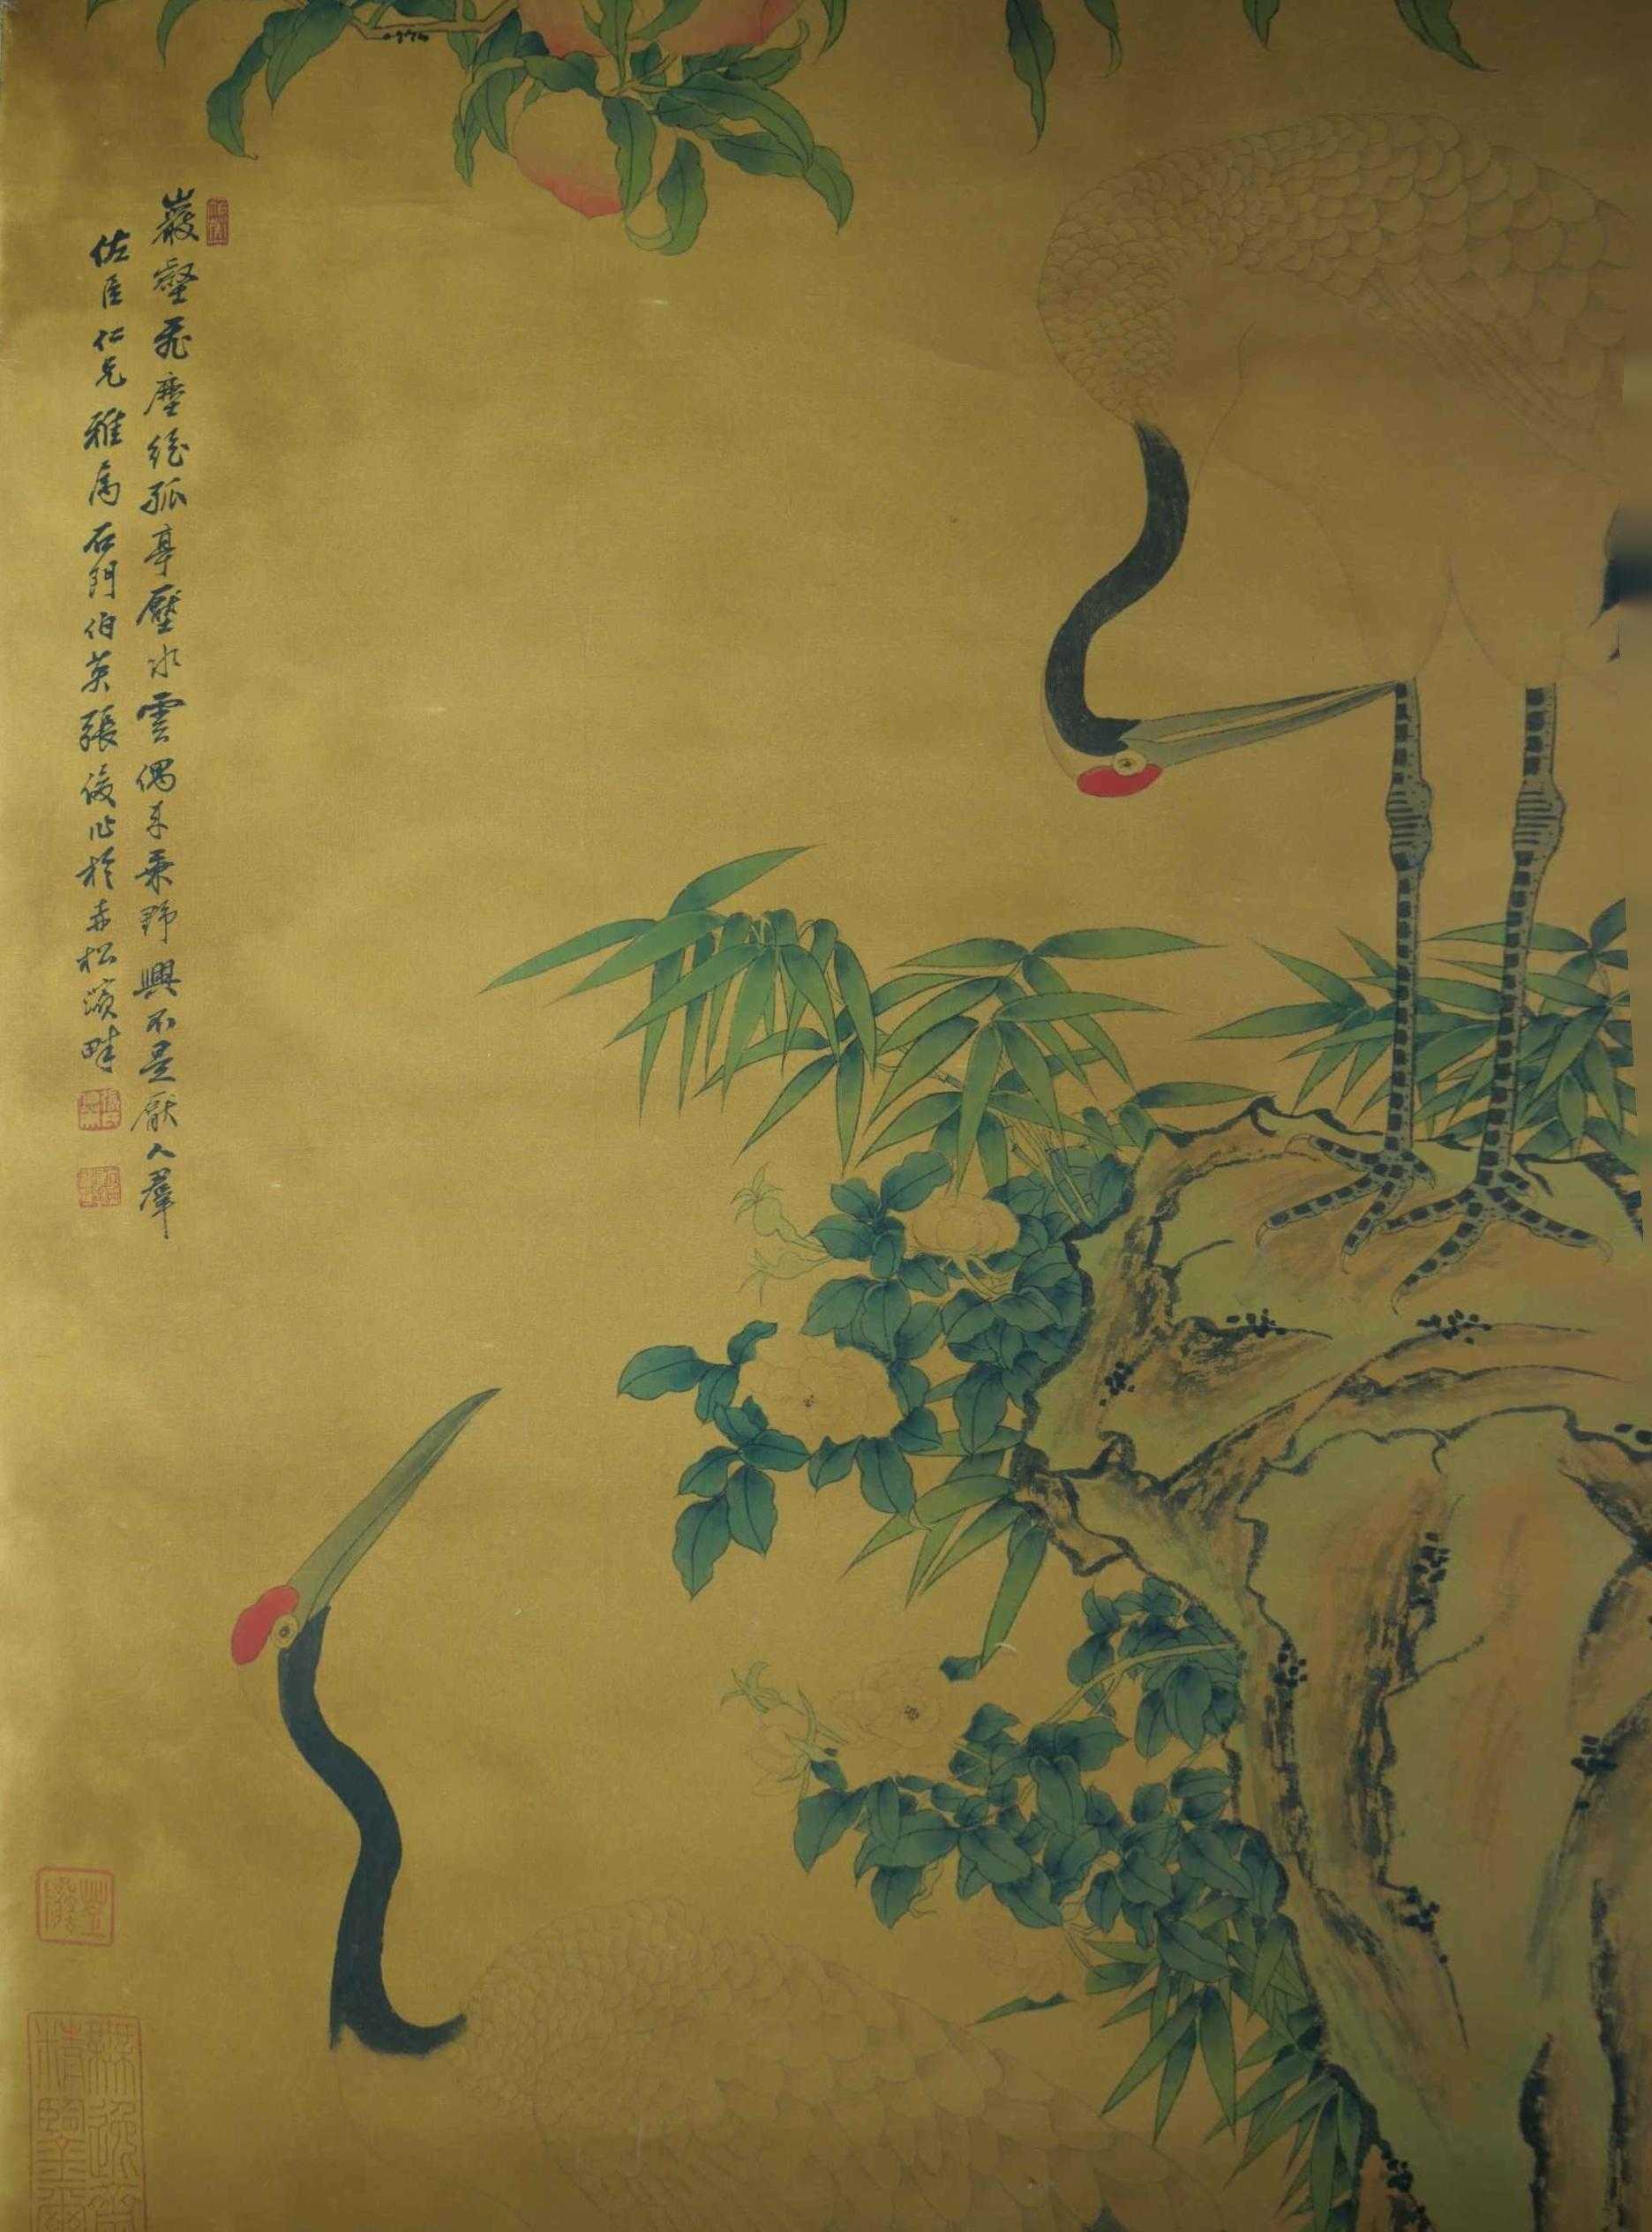 巖壑飛塵絕孤亭壓水雲偶來乘野興不是厭人羣
佐臣仁兄雅属石門伯英張俊作於赤松澬畔